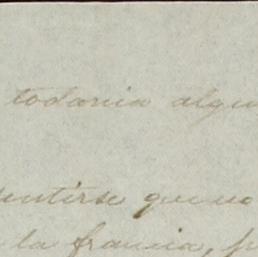 todavia algun
sentirse que no
la francia, p